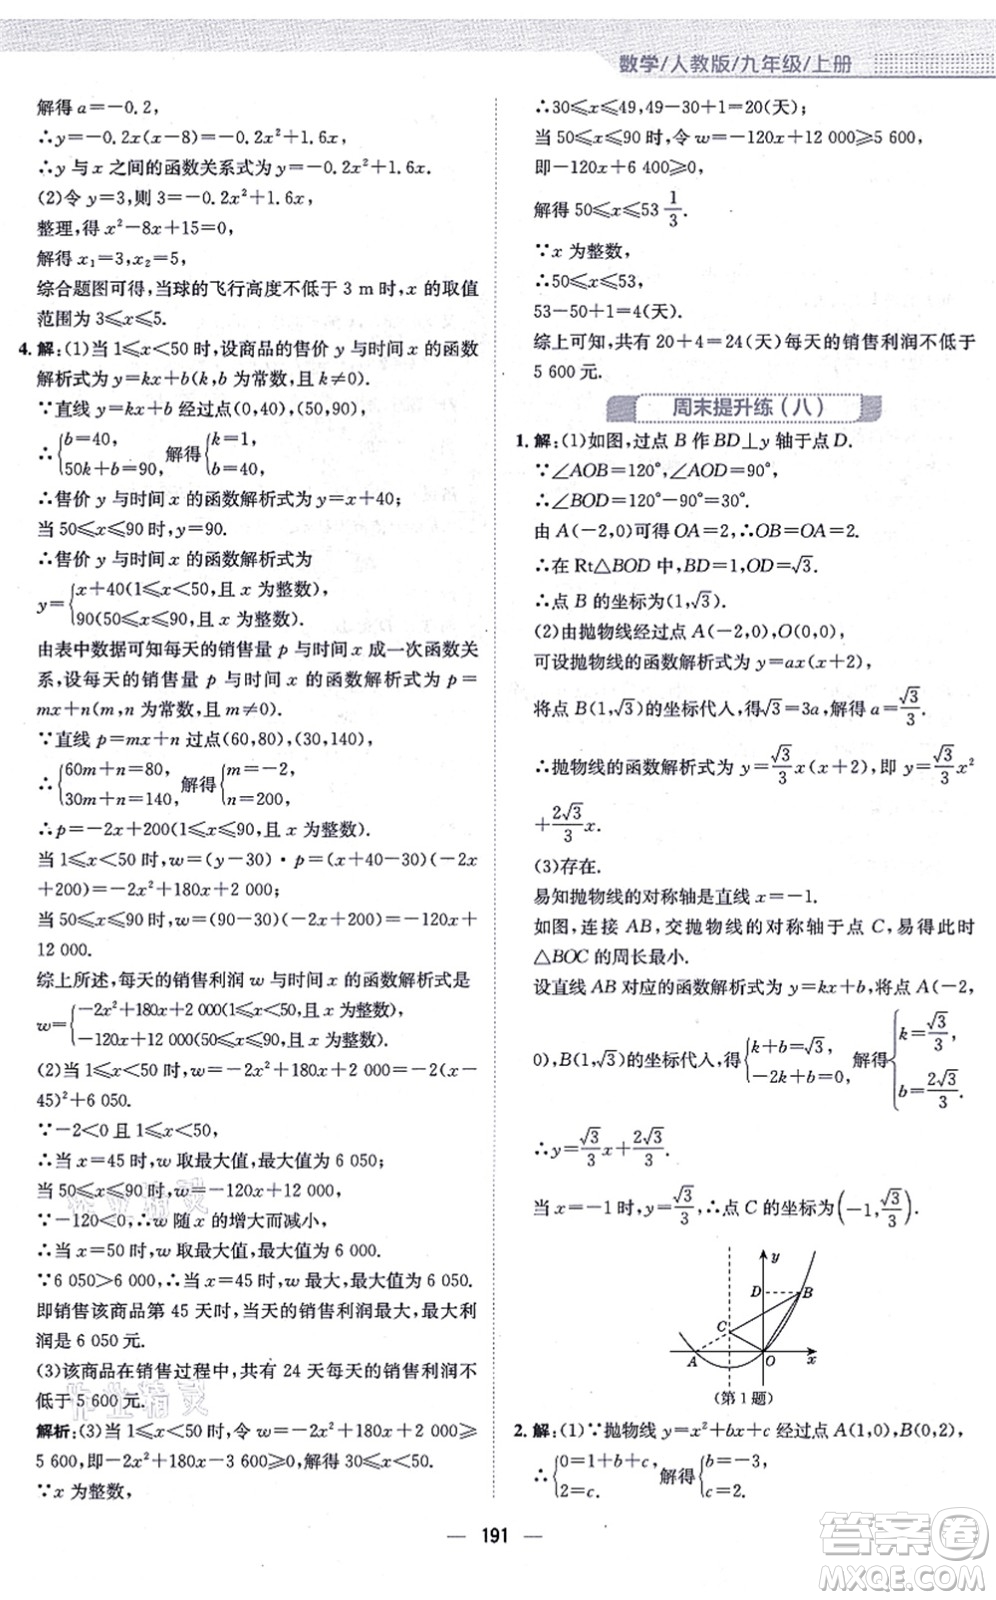 数学/人教版/九年级/上册
解得 a=-0.2,
∴y=-0.2x(x-8)=-0.2x²+1.6x,
∴y 与 x 之间的函数关系式为 y=-0.2x²+1.6x.
(2)令 y=3,则 3=-0.2x²+1.6x,
整理,得 x²-8x+15=0,
解得 x₁=3,x₂=5,
综合题图可得,当球的飞行高度不低于 3 m时,x 的取值
范围为 3≤x≤5.
4. 解:(1)当 1≤x<50 时,设商品的售价 y 与时间 x 的函数
解析式为 y=kx+b(k,b 为常数,且 k≠0).
∵直线 y=kx+b 经过点(0,40),(50,90),
∴{b=40, 50k+b=90, 解得{k=1, b=40,
∴售价 y 与时间 x 的函数解析式为 y=x+40;
当 50≤x≤90 时,y=90.
∴售价 y 与时间 x 的函数解析式为
y={x+40(1≤x<50,且 x 为整数), 90(50≤x≤90,且 x 为整数).
由表中数据可知每天的销售量 p 与时间 x 成一次函数关
系,设每天的销售量 p 与时间 x 的函数解析式为 p=
mx+n(m,n 为常数,且 m≠0).
∵直线 p=mx+n 过点(60,80),(30,140),
∴{60m+n=80, 30m+n=140, 解得{m=-2, n=200,
∴p=-2x+200(1≤x≤90,且 x 为整数).
当 1≤x<50 时,w=(y-30)·p=(x+40-30)(-2x
+200)=-2x²+180x+2 000;
当 50≤x≤90 时,w=(90-30)(-2x+200)=-120x+
12 000.
综上所述,每天的销售利润 w 与时间 x 的函数解析式是
w={-2x²+180x+2 000(1≤x<50,且 x 为整数), -120x+12 000(50≤x≤90,且 x 为整数).
(2)当 1≤x<50 时,w=-2x²+180x+2 000=-2(x-
45)²+6 050.
∵-2<0 且 1≤x<50,
∴当 x=45 时,w 取最大值,最大值为 6 050;
当 50≤x≤90 时,w=-120x+12 000,
∵-120<0,∴w 随 x 的增大而减小,
∴当 x=50 时,w 取最大值,最大值为 6 000.
∵6 050>6 000,∴当 x=45 时,w 最大,最大值为 6 050.
即销售该商品第 45 天时,当天的销售利润最大,最大利
润是 6 050 元.
(3)该商品在销售过程中,共有 24 天每天的销售利润不
低于 5 600 元.
解析:(3)当 1≤x<50 时,令 w=-2x²+180x+2 000≥
5 600,即-2x²+180x-3 600≥0,解得 30≤x≤60.
∵x 为整数,
∴30≤x≤49,49-30+1=20(天);
当 50≤x≤90 时,令 w=-120x+12 000≥5 600,
即-120x+6 400≥0,
解得 50≤x≤53 1/3.
∵x 为整数,
∴50≤x≤53,
53-50+1=4(天).
综上可知,共有 20+4=24(天)每天的销售利润不低于
5 600 元.
周末提升练(八)
1. 解:(1)如图,过点 B 作 BD⊥y 轴于点 D.
∵∠AOB=120°,∠AOD=90°,
∴∠BOD=120°-90°=30°.
由 A(-2,0)可得 OA=2,∴OB=OA=2.
∴在 Rt△BOD 中,BD=1,OD=√3.
∴点 B 的坐标为(1,√3).
(2)由抛物线经过点 A(-2,0),O(0,0),
可设抛物线的函数解析式为 y=ax(x+2),
将点 B(1,√3)的坐标代入,得√3=3a,解得 a=√3/3.
∴抛物线的函数解析式为 y=√3/3x(x+2),即 y=√3/3x²
+2√3/3x.
(3)存在.
易知抛物线的对称轴是直线 x=-1.
如图,连接 AB,交抛物线的对称轴于点 C,易得此时
△BOC 的周长最小.
设直线 AB 对应的函数解析式为 y=kx+b,将点 A(-2,
0),B(1,√3)的坐标代入,得{k+b=√3, -2k+b=0, 解得{k=√3/3, b=2√3/3.
∴y=√3/3x+2√3/3.
当 x=-1 时,y=√3/3,∴点 C 的坐标为(-1,√3/3).
y
D
B
C
A
O
x
(第 1 题)
2. 解:(1)∵抛物线 y=x²+bx+c 经过点 A(1,0),B(0,2),
∴{0=1+b+c, 2=c. 解得{b=-3, c=2.
191
作业精灵
作业精灵
答案圈
MXQE.COM